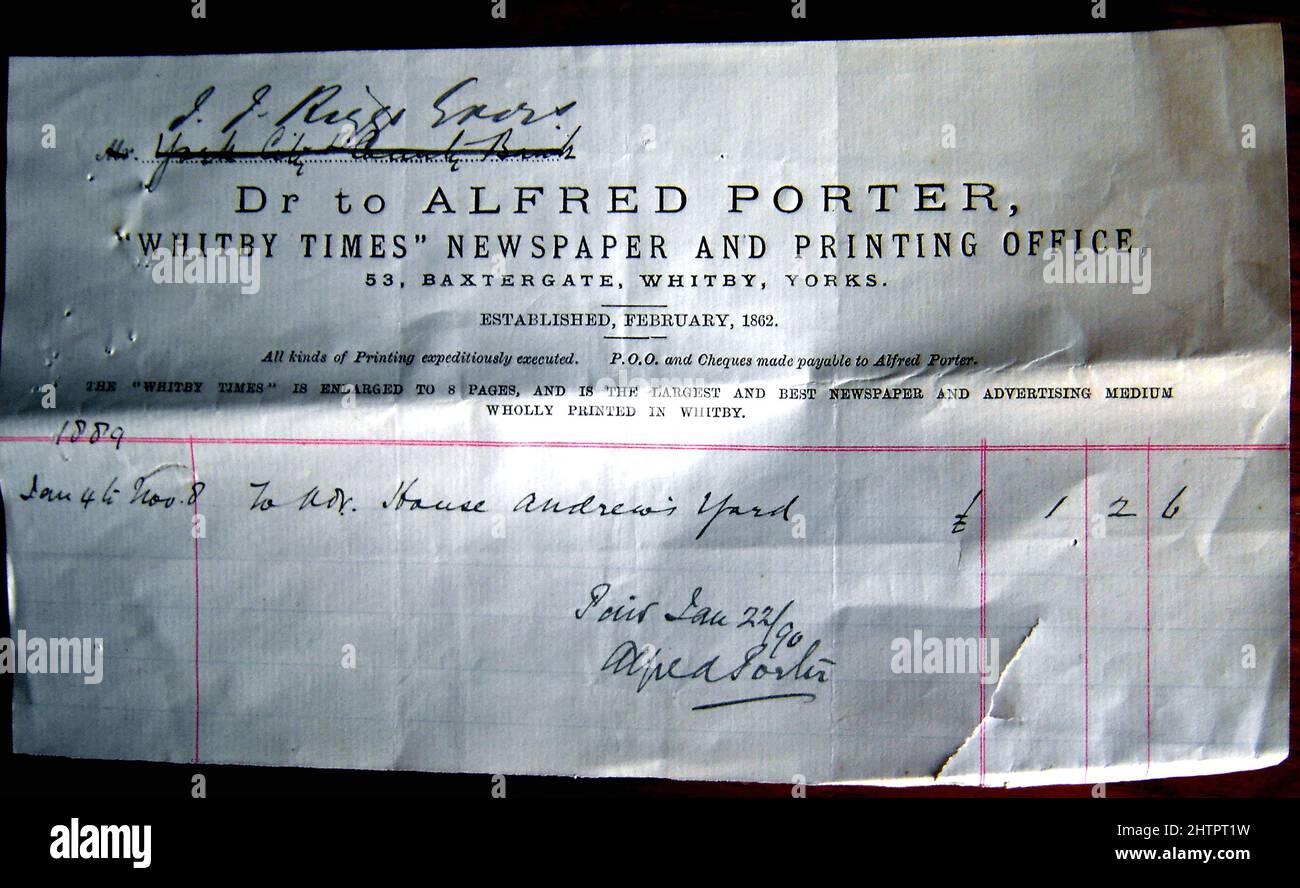 J. J. Riggs Exors
Mr. York City & County Bank
Dr to ALFRED PORTER,
"WHITBY TIMES" NEWSPAPER AND PRINTING OFFICE,
53, BAXTERGATE, WHITBY, YORKS.
ESTABLISHED, FEBRUARY, 1862.
All kinds of Printing expeditiously executed. P.O.O. and Cheques made payable to Alfred Porter.
THE "WHITBY TIMES" IS ENLARGED TO 8 PAGES, AND IS THE LARGEST AND BEST NEWSPAPER AND ADVERTISING MEDIUM
WHOLLY PRINTED IN WHITBY.
1889
Jan 4 to Nov. 8 To Adv. House Andrew's Yard £ 1 2 6
Paid Jan 22/90
Alfred Porter
alamy
Image ID: 2HTPT1W
www.alamy.com